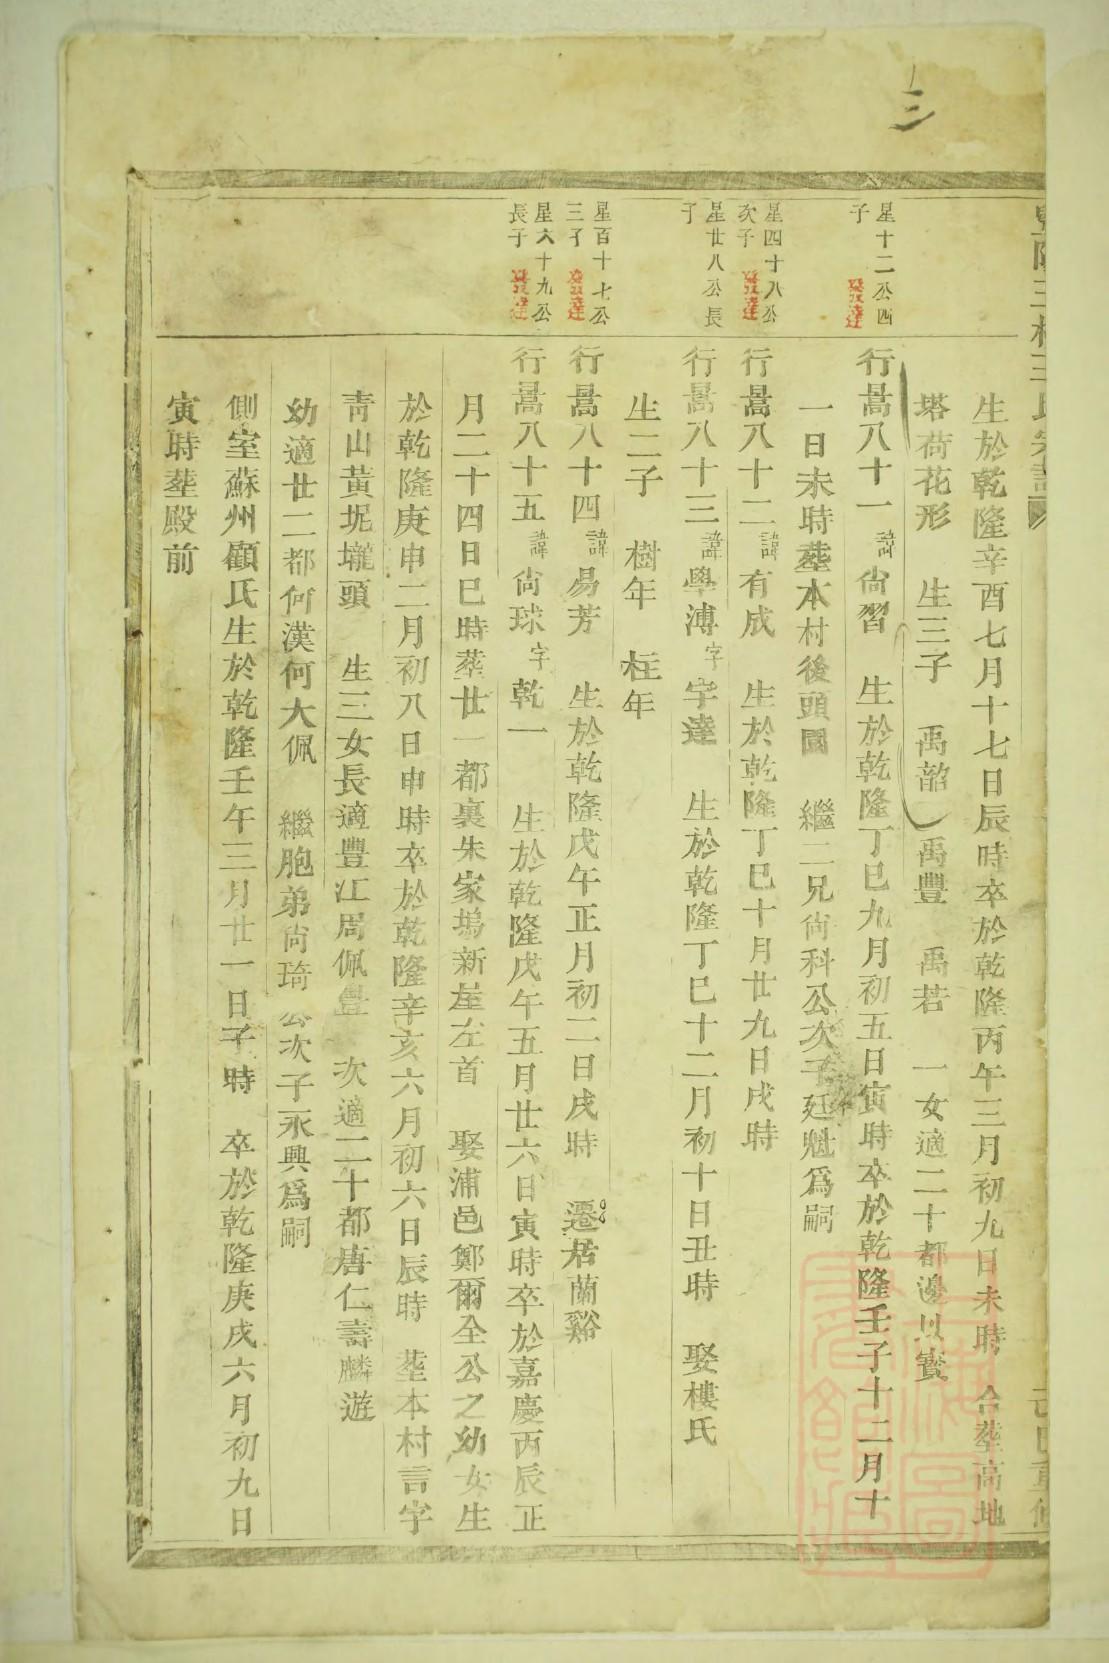 三
生於乾隆辛酉七月十七日辰時卒於乾隆丙午三月初九日未時 合塟高地
塔荷花形 生三子 禹韶 禹豐 禹若 一女適二十都邊以賓
星十二公四
子
發達
行暠八十一諱尙習 生於乾隆丁巳九月初五日寅時卒於乾隆壬子十二月十
一日未時塟本村後頭園 繼二兄尙科公次子廷魁爲嗣
星四十八公
次子 發達
行暠八十二諱有成 生於乾隆丁巳十月廿九日戌時
星廿八公長
子
行暠八十三諱學溥字宇達 生於乾隆丁巳十二月初十日丑時 娶樓氏
生二子 樹年 枉年
星百十七公
三子 發達
行暠八十四諱易芳 生於乾隆戊午正月初二日戌時 遷居蘭谿
星六十九公
長子 發達
行暠八十五諱尙球字乾一 生於乾隆戊午五月廿六日寅時卒於嘉慶丙辰正
月二十四日巳時塟廿一都裏朱家塢新屋左首 娶浦邑鄭爾全公之幼女生
於乾隆庚申二月初八日申時卒於乾隆辛亥六月初六日辰時 塟本村言字
靑山黃坭壠頭 生三女長適豐江周佩豐 次適二十都唐仁壽麟遊
幼適廿二都何漢何大佩 繼胞弟尙琦公次子永興爲嗣
側室蘇州顧氏生於乾隆壬午三月廿一日子時 卒於乾隆庚戌六月初九日
寅時塟殿前